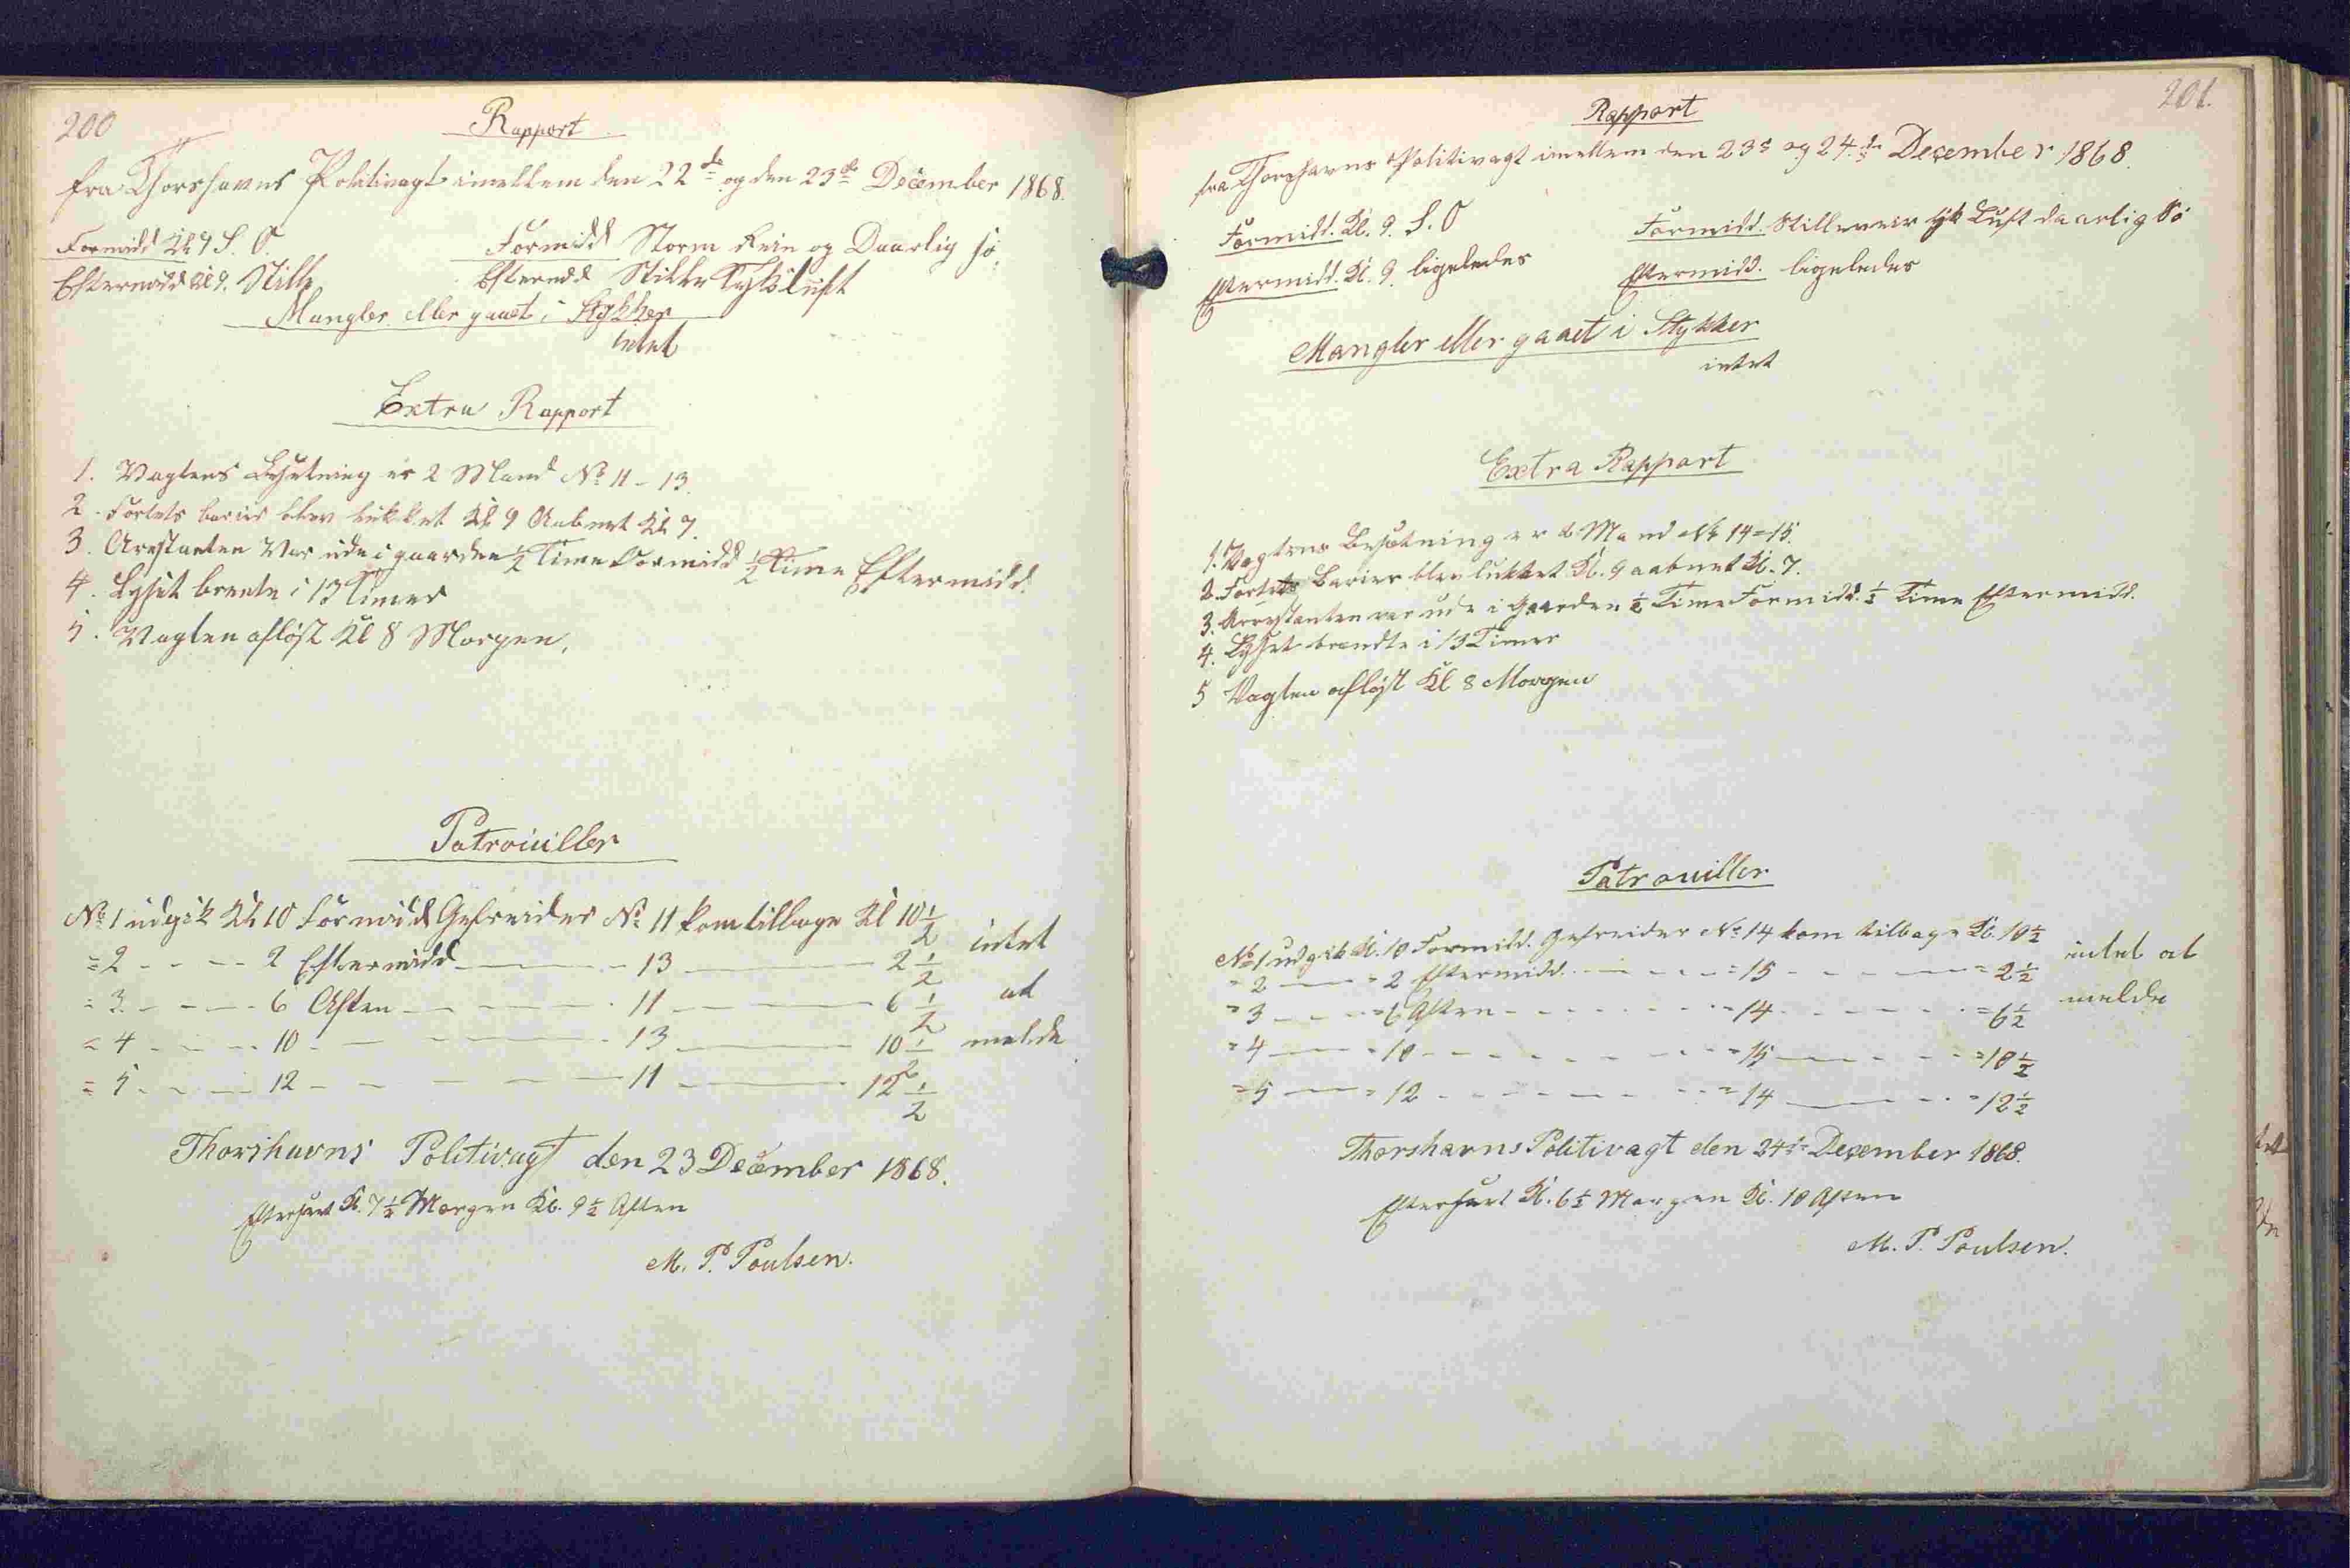 200
Rapport
fra Thorshavns Politivagt imellem den 22de og den 23de December 1868.
Formidd Kl 9 S. O.
Formidd Storm Rein og Daarlig Sö.
Eftermidd Kl 9. Stille
Eftermdd Stille Tykluft
Mangler eller gaaet i Stykker
intet
Extra Rapport
1. Vagtens Besetning er 2 Mand No 11 - 13.
2. Fortets barier blev lukket Kl 9 Aabnet Kl 7.
3. Arestanten Var ude i gaarden 1/2 Time Formidd 1/2 Time Eftermidd.
4. Lyset brente i 13 Timer
5. Vagten afløst Kl 8 Morgen.
Patrouiller
No 1 udgik Kl 10 Formidd Gefreider No 11 kom tilbage Kl 10 1/2 intet
= 2 - - - - 2 Eftermidd - - 13 - 2 1/2
= 3 - - - - 6 Aften - - - 11 - - 6 1/2 at
= 4 - - - 10 - - - - 13 - 10 1/2 melde
= 5 - - - 12 - - - - 11 - - 12 1/2
Thorshavns Politivagt den 23 December 1868.
Efterseet Kl. 7 1/2 Morgen Kl. 9 1/2 Aften
M. P. Poulsen.
201.
Rapport
fra Thorshavns Politivagt imellem den 23de og 24de December 1868.
Formidd. Kl. 9. S. O
Formidd. Stilleveir tyk Luft daarlig Sö
Eftermidd. Kl. 9. ligeledes
Eftermidd. ligeledes
Mangler eller gaaet i Stykker
intet
Extra Rapport
1. Vagtens Besætning er 2 Mand No 14 = 15.
2. Fortets Barier blev lukket Kl. 9 aabnet Kl. 7.
3. Arrestanten var ude i Gaarden 1/2 Time Formidd. 1/2 Time Eftermidd.
4. Lyset brændte i 13 Timer
5 Vagten afløst Kl 8 Morgen
Patrouiller
No 1 udgik Kl. 10 Formidd. Gefreider No 14 kom tilbage Kl. 10 1/2 intet at
= 2 - = 2 Eftermidd. - - - = 15 - - - = 2 1/2
= 3 - - = 6 Aften - - - - = 14 - - - = 6 1/2 melde
= 4 - = 10 - - - - = 15 - - - = 10 1/2
= 5 - = 12 - - - - = 14 - - - = 12 1/2
Thorshavns Politivagt den 24de December 1868.
Efterseet Kl. 6 1/2 Morgen Kl. 10 Aften
M. P. Poulsen.